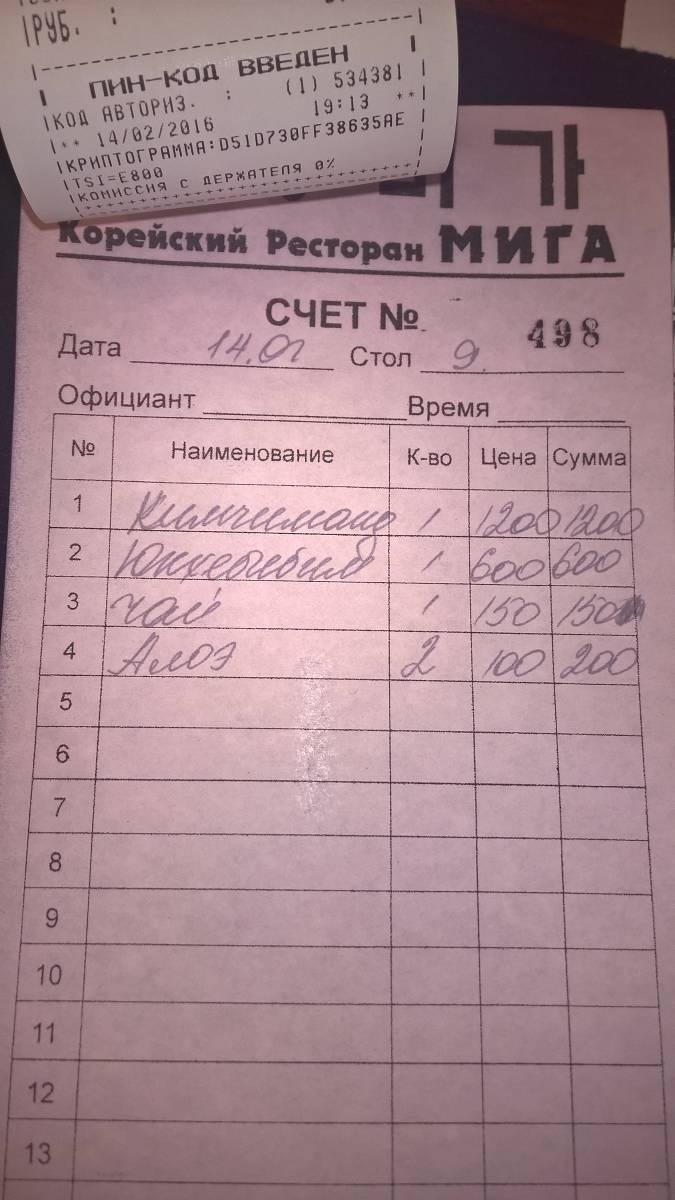 РУБ. :
ПИН-КОД ВВЕДЕН
КОД АВТОРИЗ. : (1) 534381
** 14/02/2016 19:13 **
КРИПТОГРАММА:D51D730FF38635AE
TSI=E800
КОМИССИЯ С ДЕРЖАТЕЛЯ 0%
가
Корейский Ресторан МИГА
СЧЕТ № 498
Дата 14.02 Стол 9.
Официант Время
№ Наименование К-во Цена Сумма
1 Кимчиманд 1 1200 1200
2 Юккебибим 1 600 600
3 чай 1 150 150
4 Алоэ 2 100 200
5
6
7
8
9
10
11
12
13